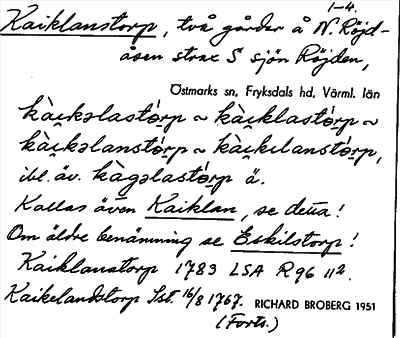 1-4.
Kaiklanstorp, två gårdar å N. Röjd-
åsen strax S sjön Röjden,
Östmarks sn, Fryksdals hd, Värml. län
kàikəlastórp ~ kàiklastórp ~
kàikəlanstórp ~ kàikılanstórp,
ibl. äv. kàgəlastórp ä.
Kallas även Kaiklan, se detta!
Om äldre benämning se Eskilstorp!
Kaiklanstorp 1783 LSA R96 11².
Kaikelandstorp Sst. 16/8 1767. RICHARD BROBERG 1951
(Forts.)